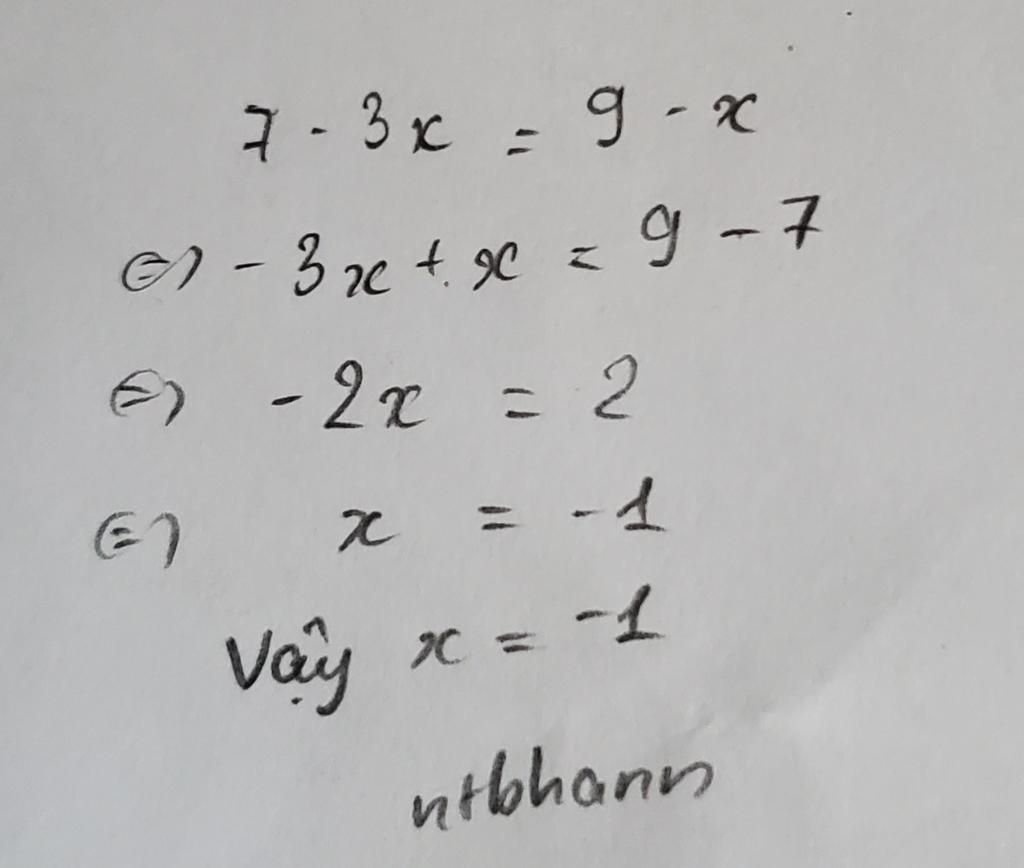 7 - 3x = 9 - x
⇔ - 3x + x = 9 - 7
⇔ - 2x = 2
⇔ x = -1
Vậy x = -1
ntbhann